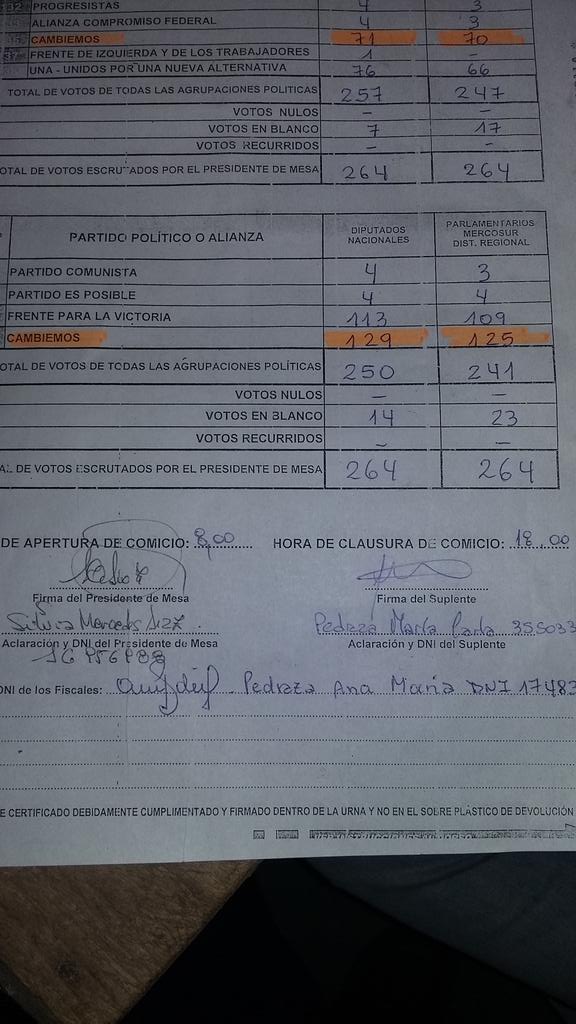 PROGRESISTAS 4 3
ALIANZA COMPROMISO FEDERAL 4 3
CAMBIEMOS 71 70
FRENTE DE IZQUIERDA Y DE LOS TRABAJADORES 1 -
UNA - UNIDOS POR UNA NUEVA ALTERNATIVA 76 66
TOTAL DE VOTOS DE TODAS LAS AGRUPACIONES POLITICAS 257 247
VOTOS NULOS - -
VOTOS EN BLANCO 7 17
VOTOS RECURRIDOS - -
OTAL DE VOTOS ESCRUTADOS POR EL PRESIDENTE DE MESA 264 264
PARTIDO POLÍTICO O ALIANZA DIPUTADOS NACIONALES PARLAMENTARIOS MERCOSUR DIST. REGIONAL
PARTIDO COMUNISTA 4 3
PARTIDO ES POSIBLE 4 4
FRENTE PARA LA VICTORIA 113 109
CAMBIEMOS 129 125
OTAL DE VOTOS DE TODAS LAS AGRUPACIONES POLÍTICAS 250 241
VOTOS NULOS - -
VOTOS EN BLANCO 14 23
VOTOS RECURRIDOS - -
AL DE VOTOS ESCRUTADOS POR EL PRESIDENTE DE MESA 264 264
DE APERTURA DE COMICIO: 8,00 HORA DE CLAUSURA DE COMICIO: 18,00
Firma del Presidente de Mesa Firma del Suplente
Silvia Mercedes Pedraza María 355033
Aclaración y DNI del Presidente de Mesa Aclaración y DNI del Suplente
DNI de los Fiscales: Pedraza Ana María DNI 17483
E CERTIFICADO DEBIDAMENTE CUMPLIMENTADO Y FIRMADO DENTRO DE LA URNA Y NO EN EL SOBRE PLÁSTICO DE DEVOLUCIÓN